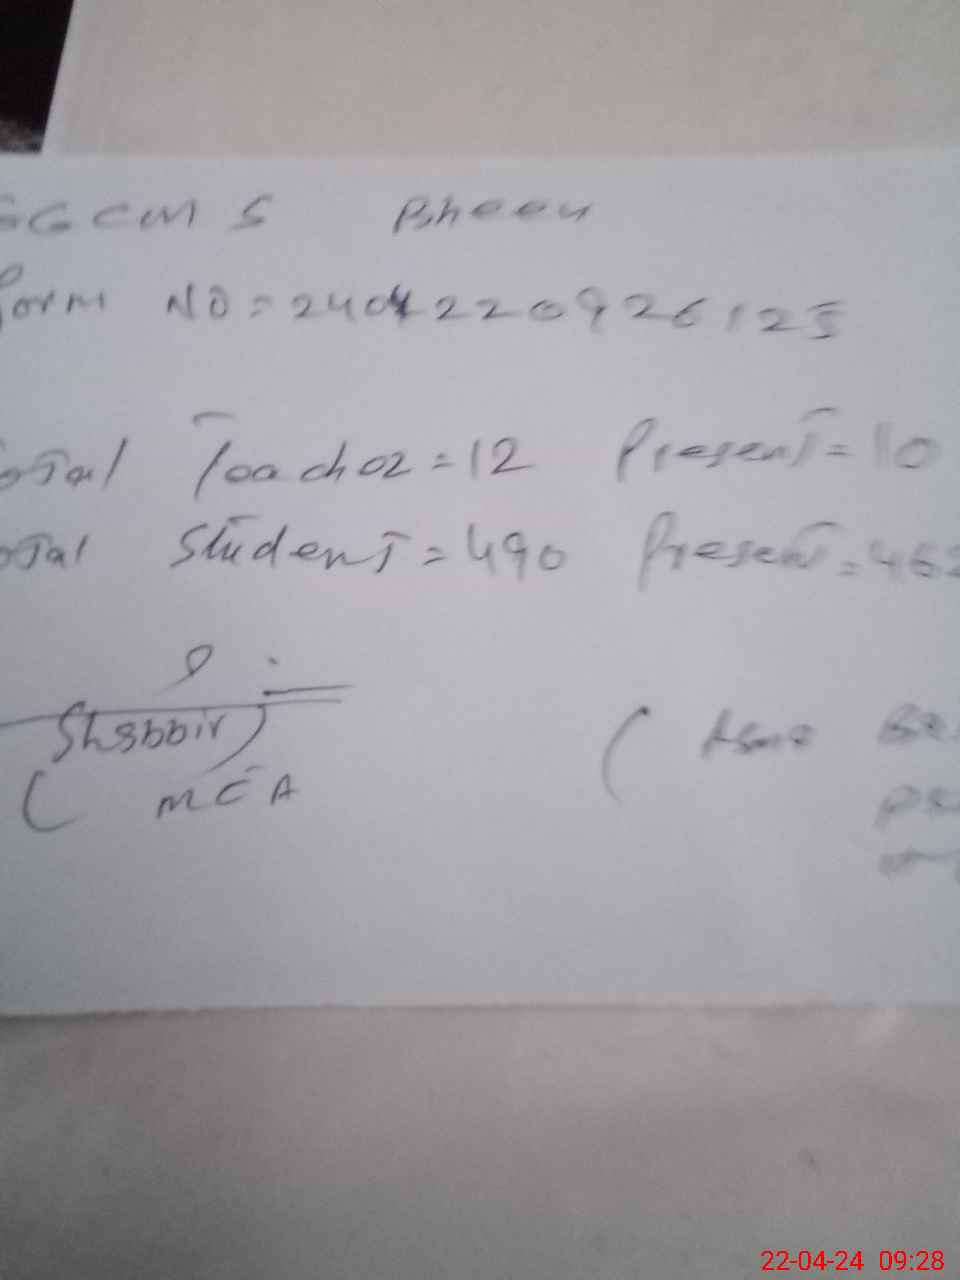 GGCMS Bheen
Form NO = 2404220926125
Total Teacher = 12 Present = 10
Total Student = 490 Present = 46
Shabbir)
( MEA
( Asma
22-04-24 09:28